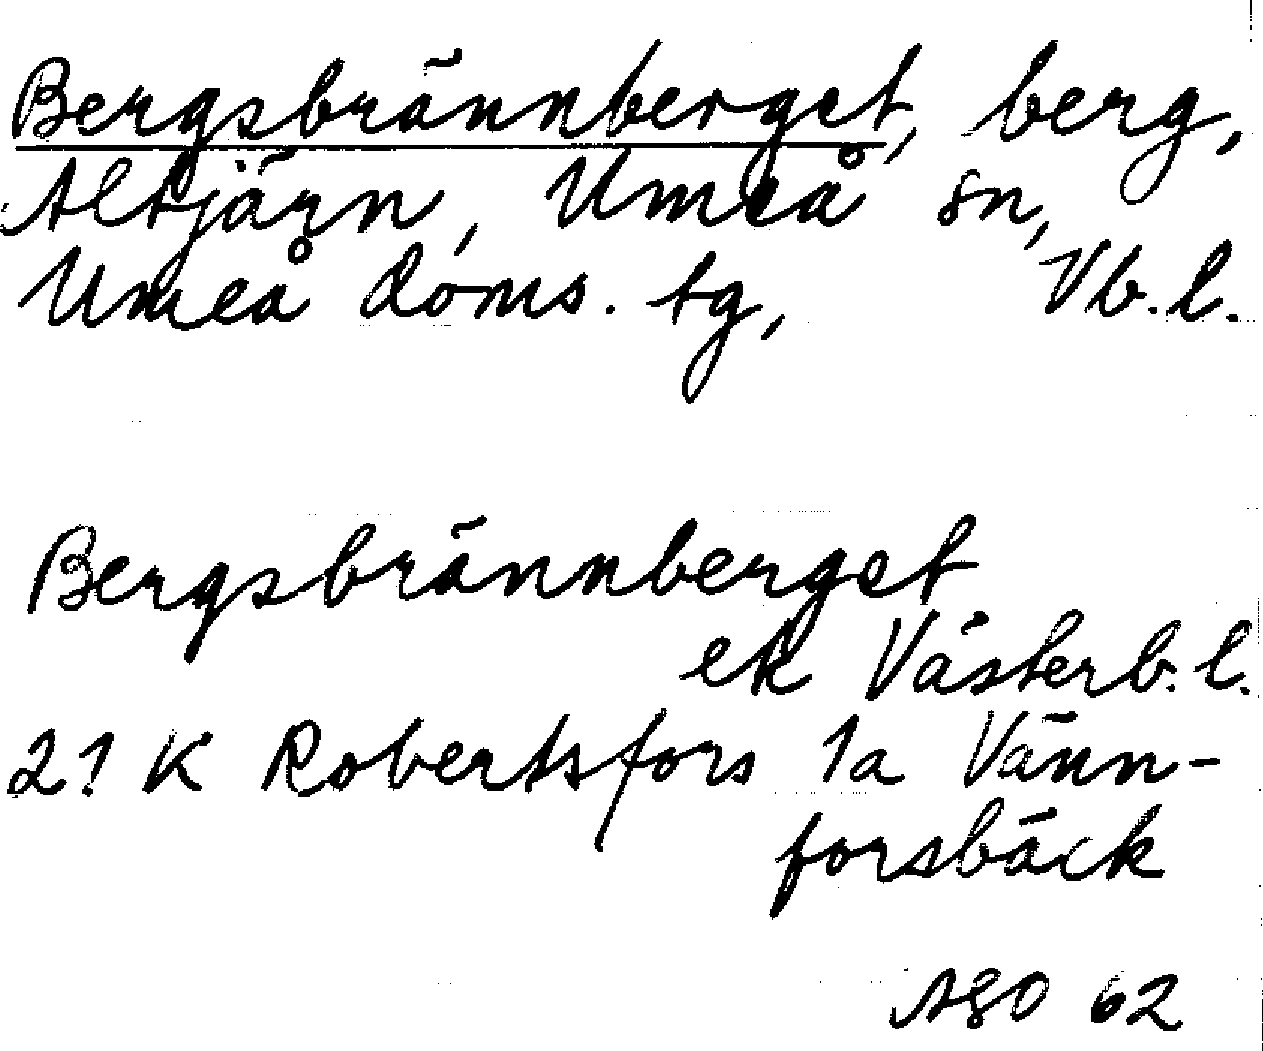 Bergsbrännberget, berg,
Altjärn, Umeå sn,
Umeå doms. tg, Vb.l.
Bergsbrännberget
ek Västerb.l.
21 K Robertsfors 1a Vänn-
forsbäck
ASO 62